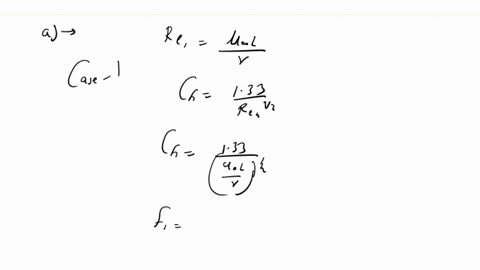 a) →
Case-1
Re₁ = U∞L / ν
C_f = 1.33 / Re₁^{1/2}
C_f = 1.33 / (U∞L / ν)^{1/2}
f₁ =